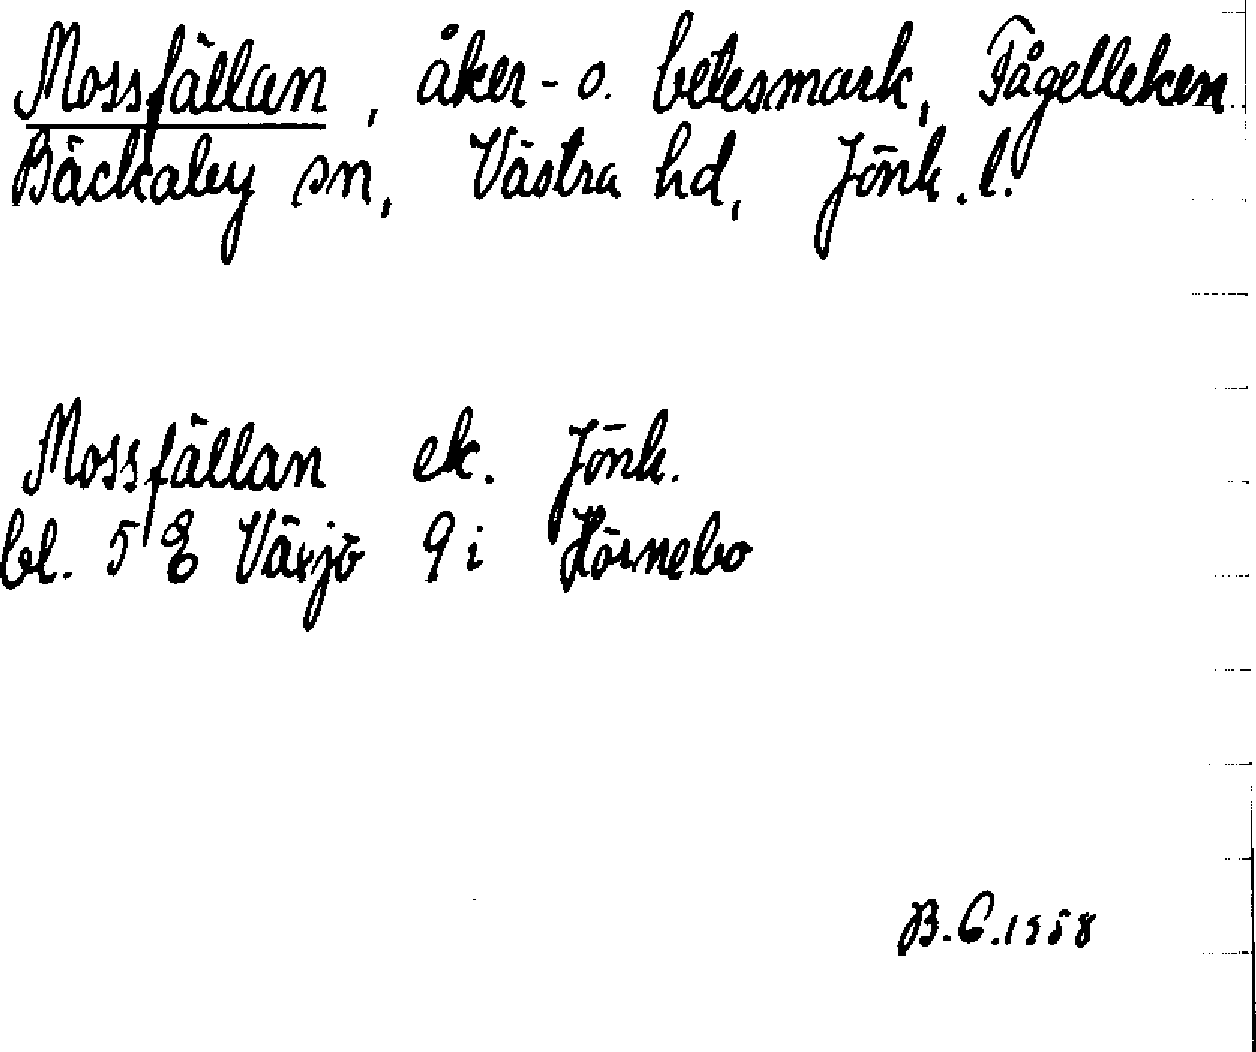 Mossfällan, åker- o. betesmark, Fågelleken
Bäckaby sn, Västra hd, Jönk. l.
Mossfällan ek. Jönk.
bl. 5 E Växjö 9 i Hörnebo
B.E. 1958